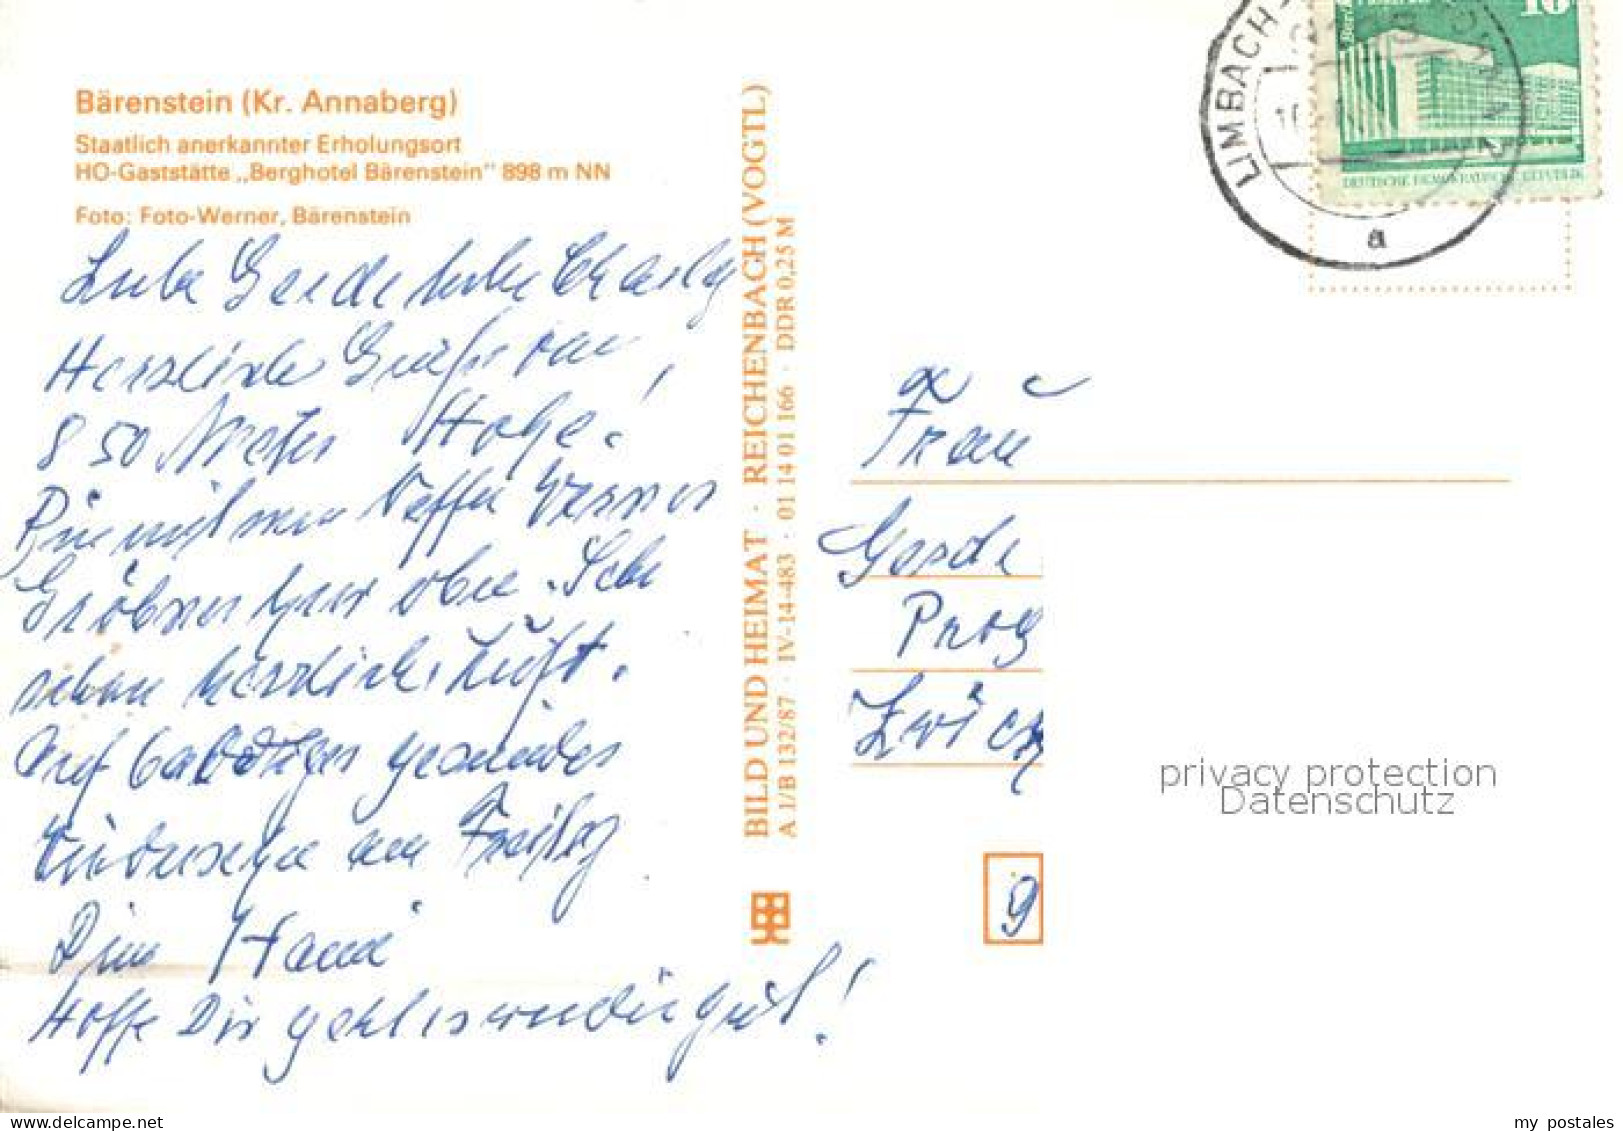 Bärenstein (Kr. Annaberg)
Staatlich anerkannter Erholungsort
HO-Gaststätte „Berghotel Bärenstein" 898 m NN
Foto: Foto-Werner, Bärenstein
Liebe Gerde liebe
Herzliche Grüße von
850 Meter Höhe!
Bin mit mein Neffen Werner
Gröbner hier oben. Sehr
schöne herrliche Luft.
Auf baldiges gesundes
Wiedersehn am Freitag
Dein Hans
Hoffe Dir geht es wieder gut!
BILD UND HEIMAT · REICHENBACH (VOGTL)
A 1/B 132/87 · IV-14-483 · 01 14 01 166 · DDR 0,25 M
LIMBACH-
2
a
10
DEUTSCHE DEMOKRATISCHE REPUBLIK
Frau
Gerde
Zwick
9
privacy protection
Datenschutz
my postales